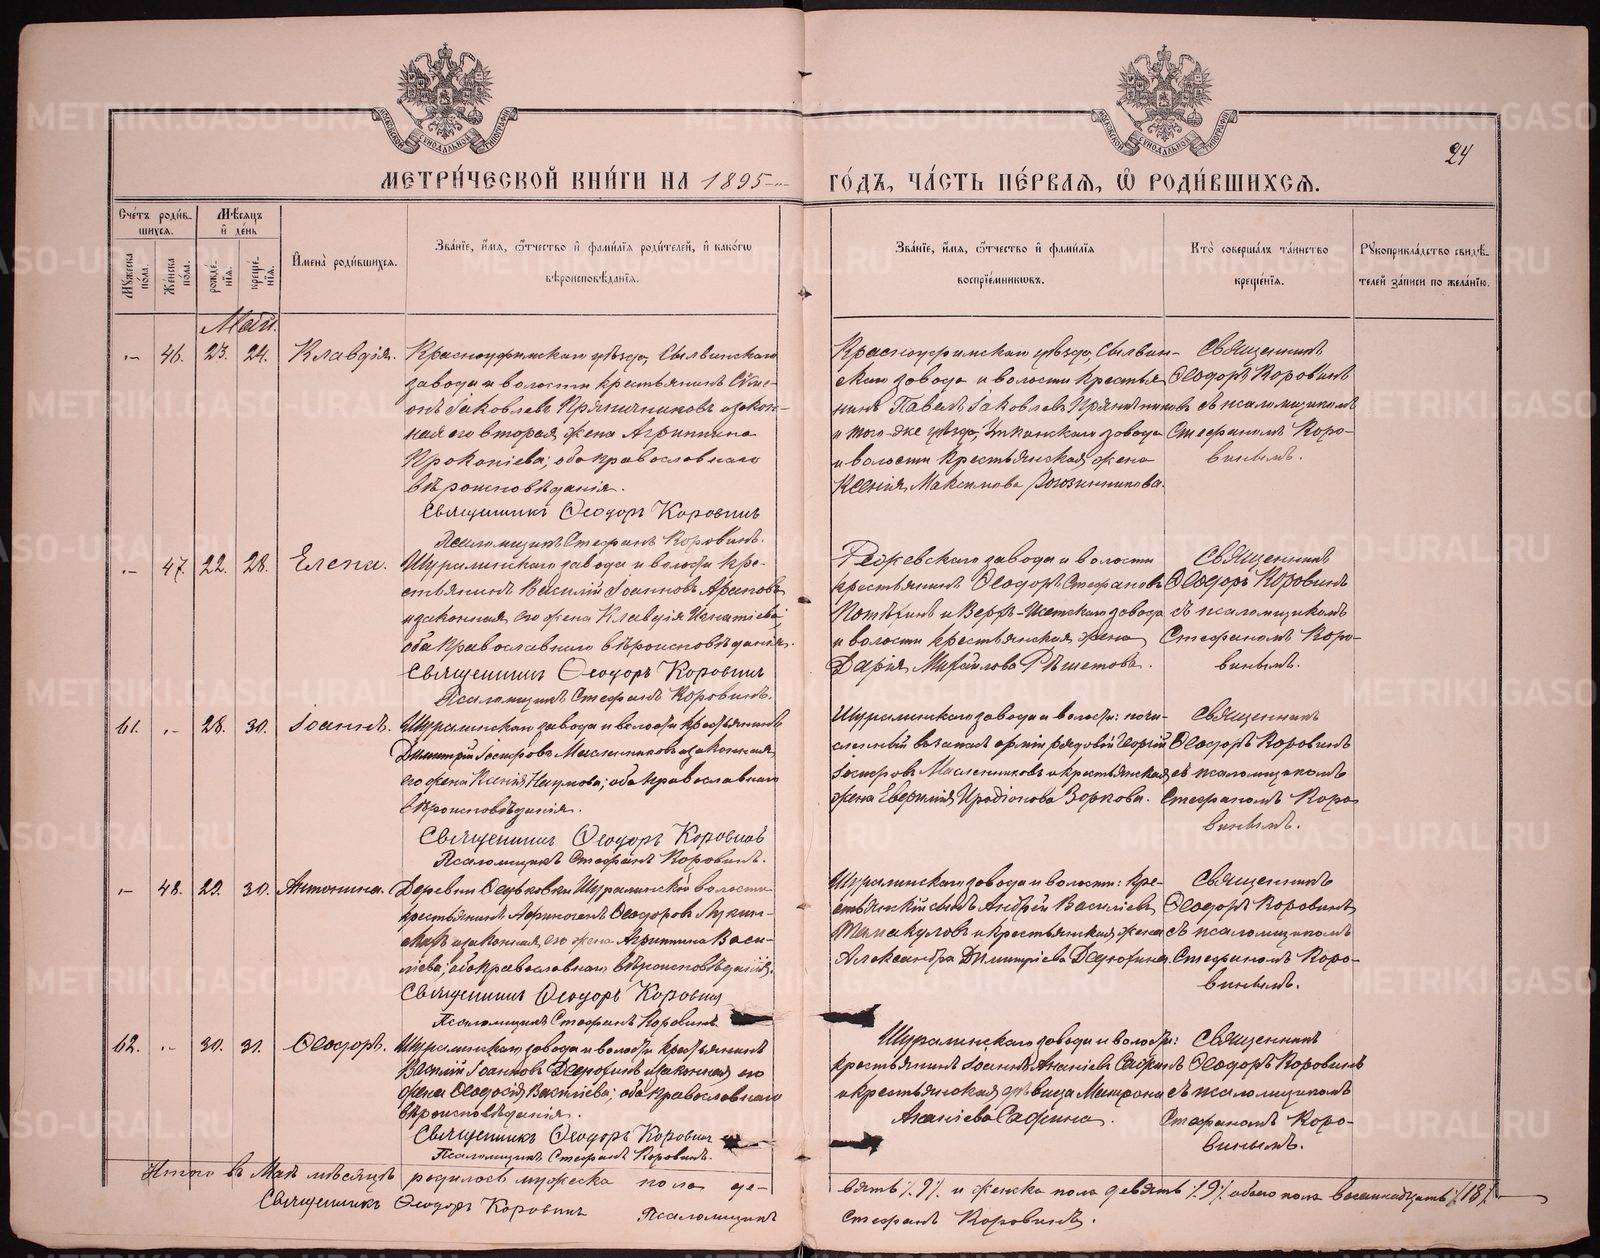 МОСКОВСКОЙ СУНОДАЛЬНОЙ ТИПОГРАФІИ
МОСКОВСКОЙ СУНОДАЛЬНОЙ ТИПОГРАФІИ
24
МЕТРИ́ЧЕСКОЙ КНИ́ГИ НА 1895 ГО́ДЪ, ЧА́СТЬ ПЕ́РВАЯ, Ѡ РОДИ́ВШИХСЯ.
Сче́тъ роди́вшихся.
Мꙋжеска по́ла.
Же́нска по́ла.
Мѣ́сяцъ и҆ де́нь
рожде́нїя.
креще́нїя.
И҆мена̀ роди́вшихся.
Зва́нїе, и҆́мя, ѻ҆́тчество и҆ фами́лїя роди́телей, и҆ како́гѡ
вѣроисповѣ́данїя.
Зва́нїе, и҆́мя, ѻ҆́тчество и҆ фами́лїя
воспрїе́мникѡвъ.
Кто̀ соверша́лъ та́инство
креще́нїя.
Рꙋкоприкла́дство свидѣ́-
телей за́писи по жела́нїю.
Май.
46. 23. 24. Клавдія.
Красноуфимскаго уѣзда, Сылвинскаго
завода и волости крестьянинъ Сѵме-
онъ Іаковлевъ Пряничниковъ и закон-
ная его вторая жена Агриппина
Прокопіева; оба православнаго
вѣроисповѣданія.
Священникъ Ѳеодоръ Коровинъ
Псаломщикъ Стефанъ Коровинъ.
Красноуфимскаго уѣзда, Сылвин-
скаго завода и волости крестья-
нинъ Павелъ Іаковлевъ Пряничниковъ
и того-же уѣзда, Уткинскаго завода
и волости крестьянская жена
Ксенія Максимова Рогозинникова.
Священникъ
Ѳеодоръ Коровинъ
съ псаломщикомъ
Стефаномъ Коро-
винымъ.
47. 22. 28. Елена.
Шуралинскаго завода и волости кре-
стьянинъ Василій Іоанновъ Араповъ
и законная его жена Клавдія Игнатіева;
оба православнаго вѣроисповѣданія.
Священникъ Ѳеодоръ Коровинъ
Псаломщикъ Стефанъ Коровинъ.
Режевскаго завода и волости
крестьянинъ Ѳеодоръ Стефановъ
и Верхъ-Исетскаго завода
и волости крестьянская жена
Дарія Михайлова Рѣшетова.
Священникъ
Ѳеодоръ Коровинъ
съ псаломщикомъ
Стефаномъ Коро-
винымъ.
61. 28. 30. Іоаннъ.
Шуралинскаго завода и волости крестьянинъ
Димитрій Іосифовъ Масленниковъ и законная
его жена Ксенія Наумова; оба православнаго
вѣроисповѣданія.
Священникъ Ѳеодоръ Коровинъ
Псаломщикъ Стефанъ Коровинъ.
Шуралинскаго завода и волости: зачи-
сленный въ запасъ арміи рядовой Георгій
Іосифовъ Масленниковъ и крестьянская
жена Евфимія Иродіонова Зоркова.
Священникъ
Ѳеодоръ Коровинъ
съ псаломщикомъ
Стефаномъ Коро-
винымъ.
48. 29. 30. Антонина.
Деревни Ѳедьковки Шуралинской волости
крестьянинъ Афиногенъ Ѳеодоровъ
и законная его жена Агриппина Васи-
ліева; оба православнаго вѣроисповѣданія.
Священникъ Ѳеодоръ Коровинъ
Псаломщикъ Стефанъ Коровинъ.
Шуралинскаго завода и волости: кре-
стьянскій сынъ Андрей Василіевъ
Тамакуловъ и крестьянская жена
Александра Димитріева Дорофина.
Священникъ
Ѳеодоръ Коровинъ
съ псаломщикомъ
Стефаномъ Коро-
винымъ.
62. 30. 31. Ѳеодоръ.
Шуралинскаго завода и волости крестьянинъ
Василій Іоанновъ Дорофинъ и законная его
жена Ѳеодосія Василіева; оба православнаго
вѣроисповѣданія.
Священникъ Ѳеодоръ Коровинъ
Псаломщикъ Стефанъ Коровинъ.
Шуралинскаго завода и волости:
крестьянинъ Іоаннъ Ананіевъ Сафинъ
и крестьянская дѣвица Матрона
Ананіева Сафина.
Священникъ
Ѳеодоръ Коровинъ
съ псаломщикомъ
Стефаномъ Коро-
винымъ.
Итого въ Маѣ мѣсяцѣ родилось мужеска пола де-
вять /.9/. и женска пола девять /.9/. обоего пола восемнадцать /18/.
Священникъ Ѳеодоръ Коровинъ Псаломщикъ
Стефанъ Коровинъ.
METRIKI.GASO-URAL.RU